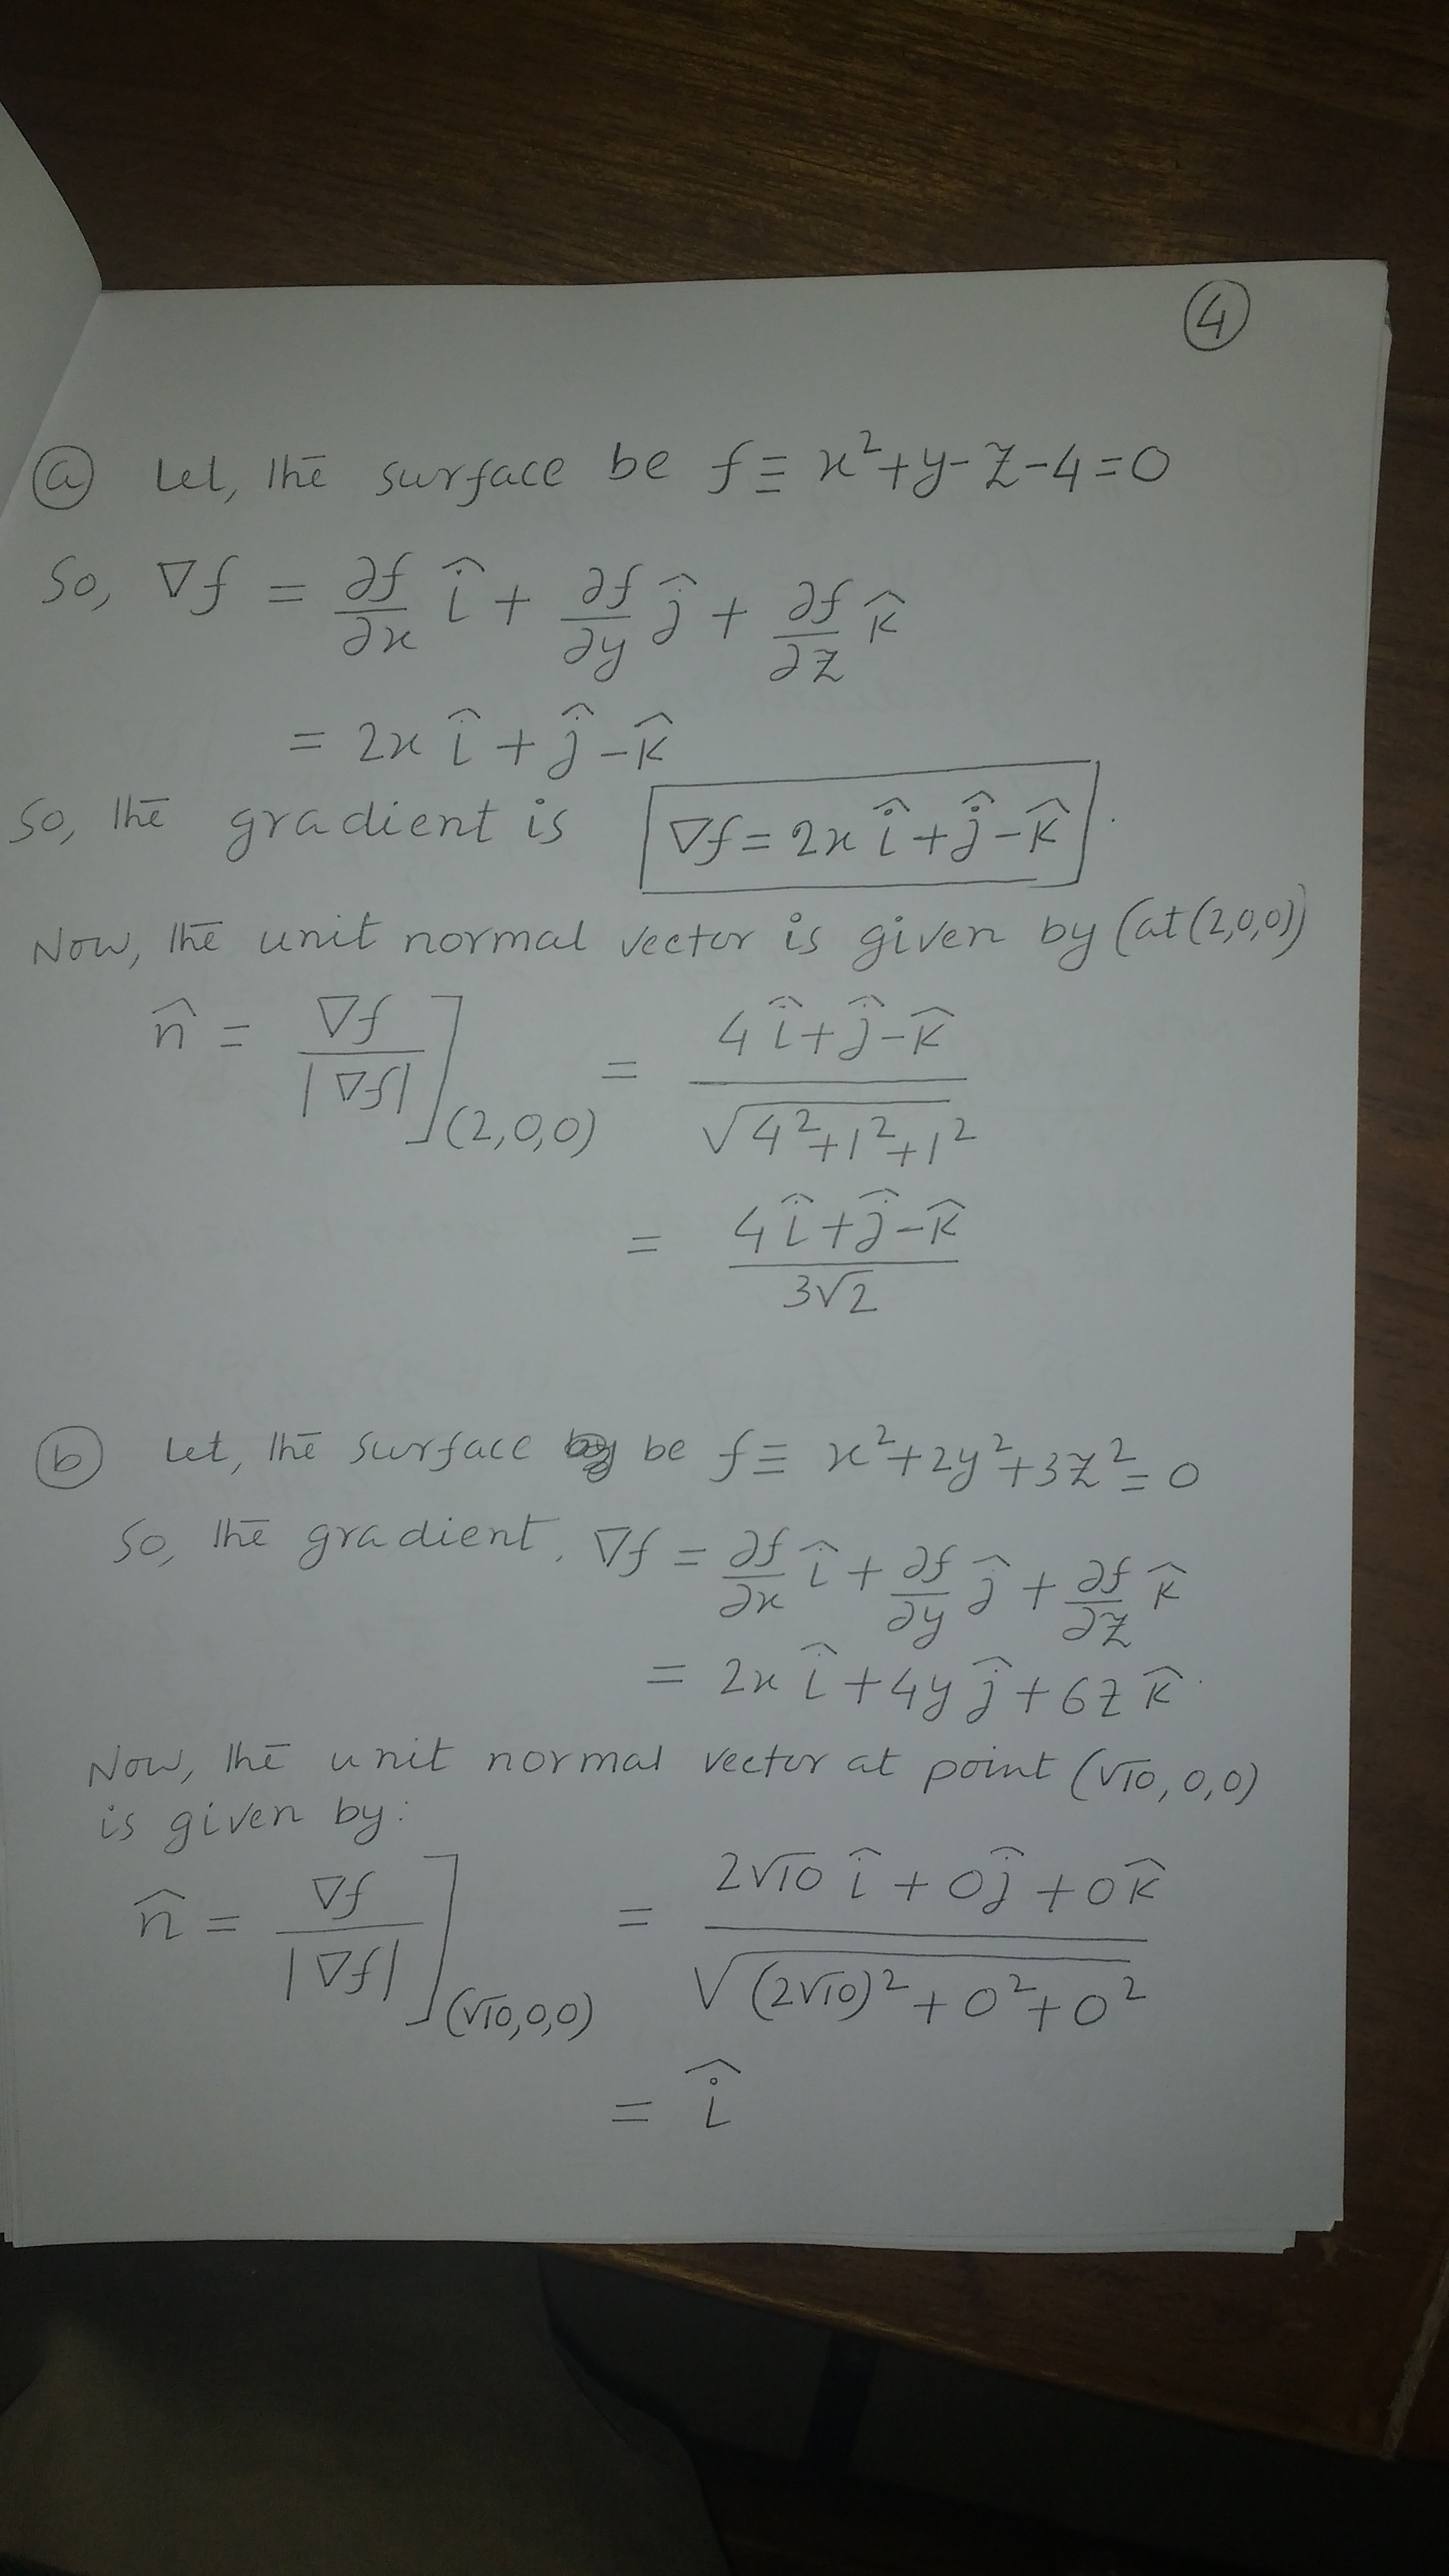 ④
ⓐ Let, the surface be f ≡ x²+y-z-4=0
So, ∇f = ∂f/∂x î + ∂f/∂y ĵ + ∂f/∂z k̂
= 2x î + ĵ - k̂
So, the gradient is ∇f = 2x î + ĵ - k̂.
Now, the unit normal vector is given by (at (2,0,0))
n̂ = ∇f/|∇f| ](2,0,0) = (4î + ĵ - k̂)/√(4²+1²+1²)
= (4î + ĵ - k̂)/3√2
ⓑ Let, the surface be f ≡ x²+2y²+3z²=0
So, the gradient, ∇f = ∂f/∂x î + ∂f/∂y ĵ + ∂f/∂z k̂
= 2x î + 4y ĵ + 6z k̂.
Now, the unit normal vector at point (√10, 0, 0)
is given by:
n̂ = ∇f/|∇f| ](√10,0,0) = (2√10 î + 0ĵ + 0k̂)/√((2√10)² + 0² + 0²)
= î